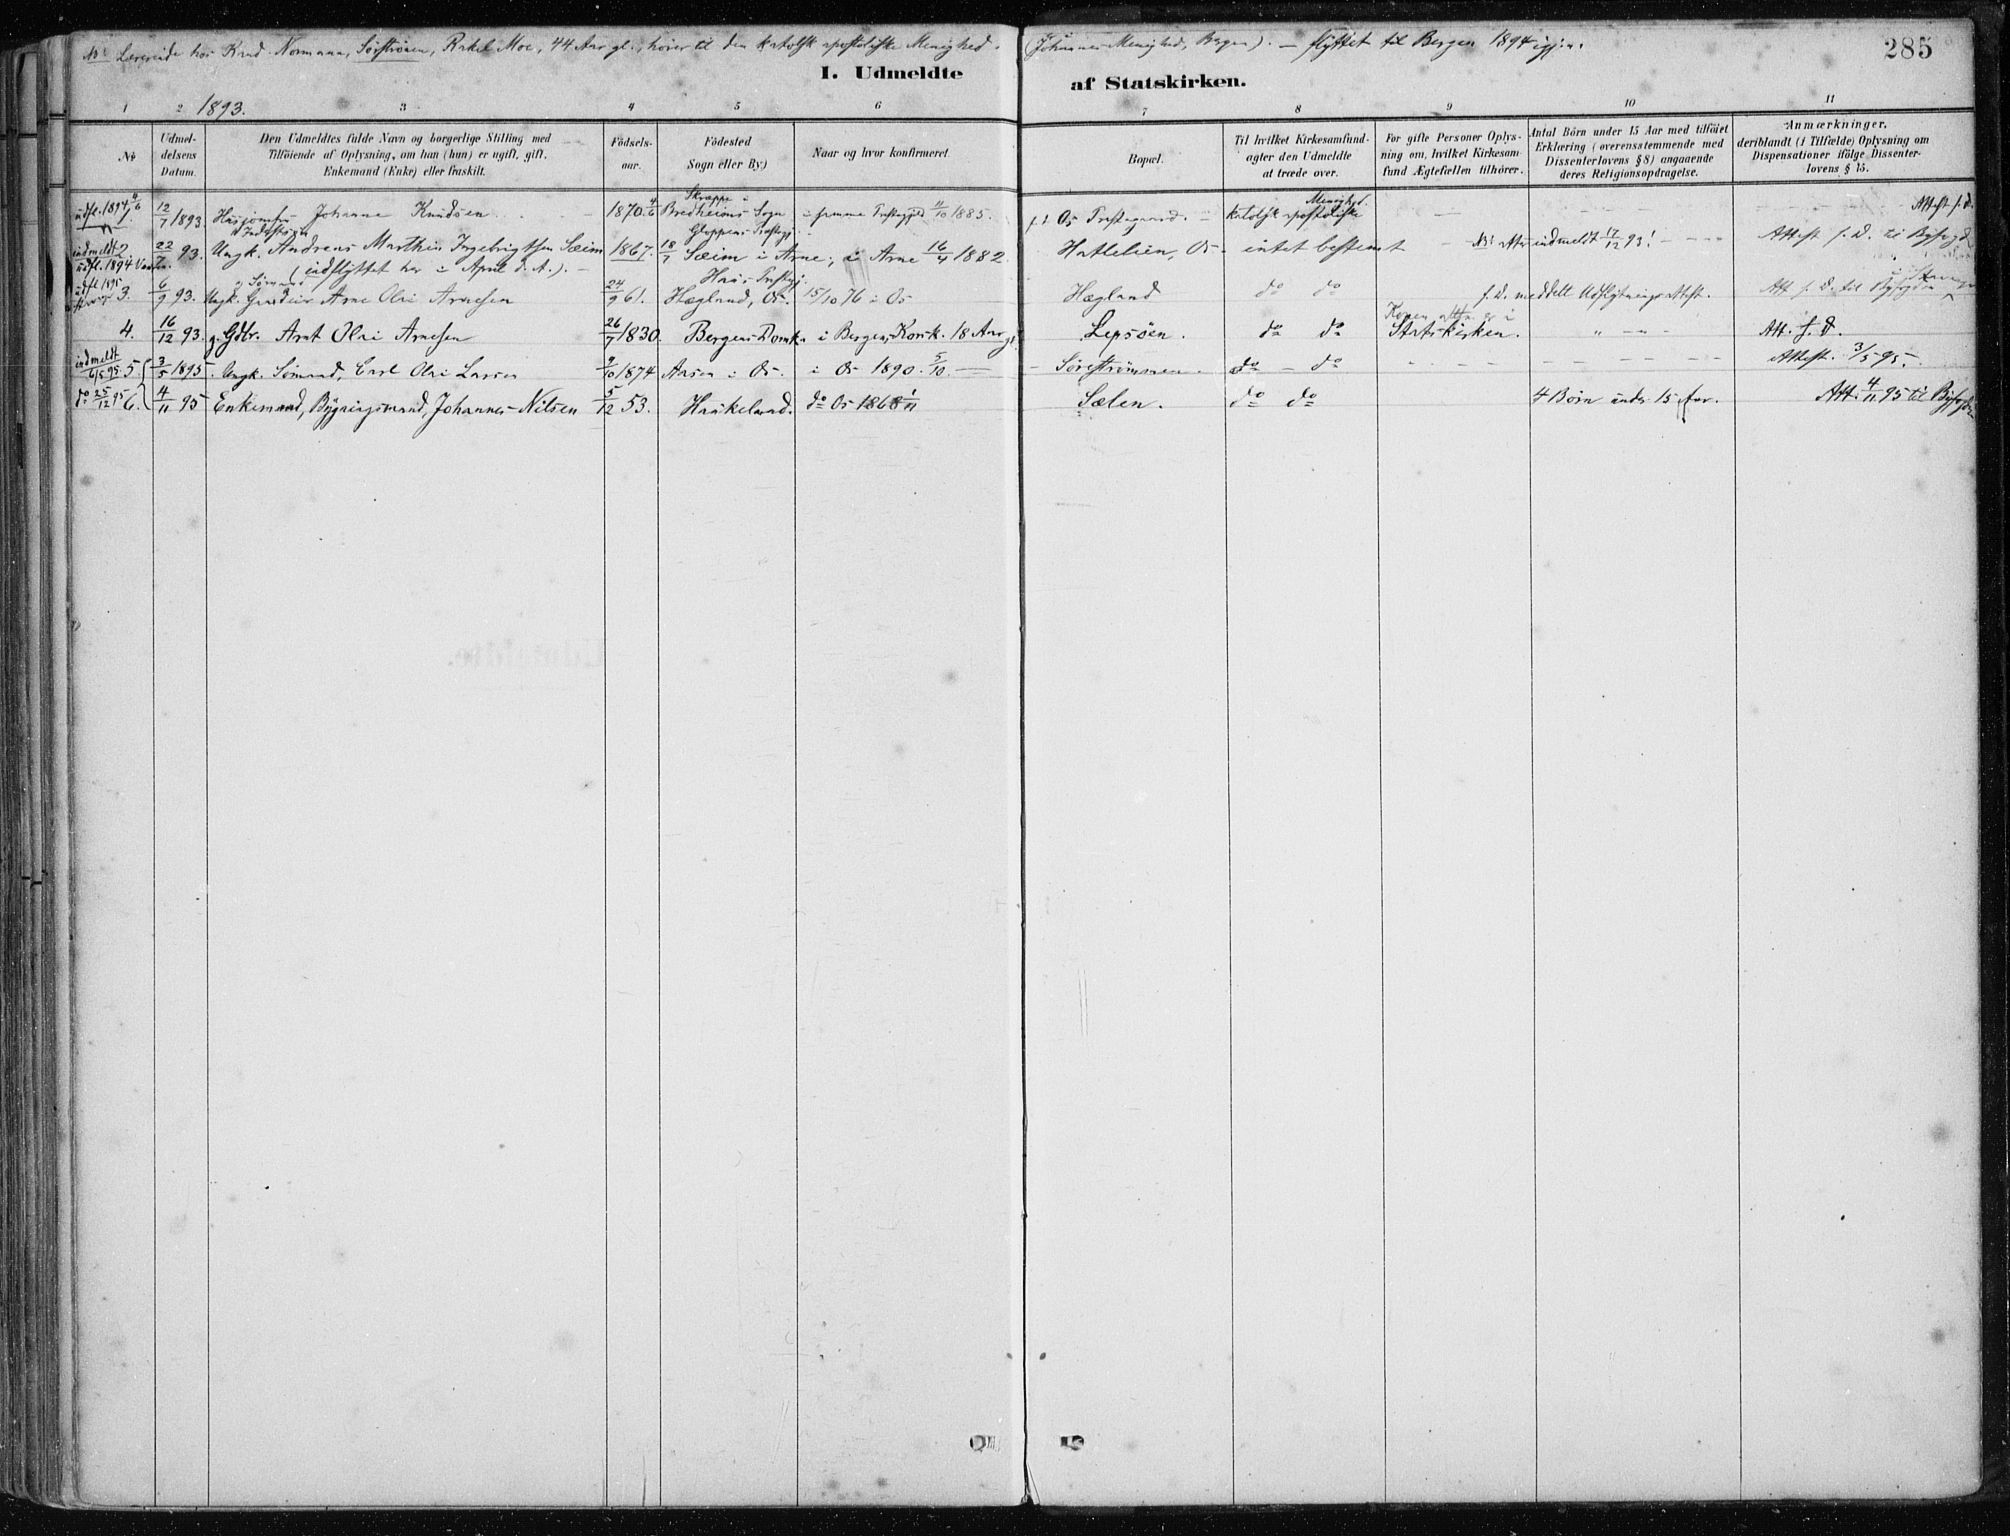 Lærerinde hos Kand. Normann, Sørstrømen, Rakel Moe, 44 Aar gl., hører til den katolsk apostoliske Menighed. (Johannes Menighed, Bergen). — flyttet til Bergen 1894 igjen.
285
I. Udmeldte af Statskirken.
1 2 3 4 5 6 7 8 9 10 11
1893.
No
Udmeldelsens Datum.
Den Udmeldtes fulde Navn og borgerlige Stilling med Tilføiende af Oplysning, om han (hun) er ugift, gift, Enkemand (Enke) eller fraskilt.
Fødselsaar.
Fødested Sogn (eller By.)
Naar og hvor konfirmeret.
Bopæl.
Til hvilket Kirkesamfund agter den Udmeldte at træde over.
For gifte Personer Oplysning om, hvilket Kirkesamfund Ægtefællen tilhører.
Antal Børn under 15 Aar med tilføiet Erklæring (overensstemmende med Dissenterlovens § 8) angaaende deres Religionsopdragelse.
Anmærkninger, deriblandt (i Tilfælde) Oplysning om Dispensationer ifølge Dissenterlovens § 15.
udfl. 1894 4/6
1. 12/7 1893. Husjomfru Johanne Knudsen 1870 4/6 Skrøppe i Bredheims Sogn Gloppens Præstegj. i samme Præstegjeld 11/10 1885. p. t. Os Præstegaard. katolsk apostoliske Menighed. Attest s. D.
indmeldt 2 22/7 93. Ungk. Andreas Marthin Ingebrigtsen Seim 1867. 18/7 Seim i Arne, i Arne 16/4 1882. Hatlelien, Os. intet bestemt NB: atter indmeldt 17/12 93! Attest s. D. til Byfogden
udfl. 1894
(indflyttet her i April d. A.). Haus Præstegj.
udfl. 1895
3. 6/9 93. Ungk. Arne Olai Arnesen 24/9 61. Hægland, Os. 15/10 76 i Os Hægland do do s. D. meddelt Udflytnings-Attest. Att. s. D. til Byfogden
4. 16/12 93. g. Gdbr. Arnt Olai Arnesen 26/7 1830. Bergens Domk. i Bergens Korsk. 18 Aar gl. Lepsøen. do do Konen er i Statskirken. Att. s. D.
indmeldt 6/5 95. 5 3/5 1895. Ungk. Sømand, Carl Olai Larsen 9/10 1874 Aasen i Os. i Os 1890. 5/10. Sørestrømmen. do do Attest. 3/5 95.
do 25/12 95 6. 4/11 95 Enkemand, Bygningsmand, Johannes Nilsen 5/12 53. Haukeland. do Os 1868 1/11 Sælen. do do 4 Børn under 15 Aar. Att. 4/11 95 til Byfogden